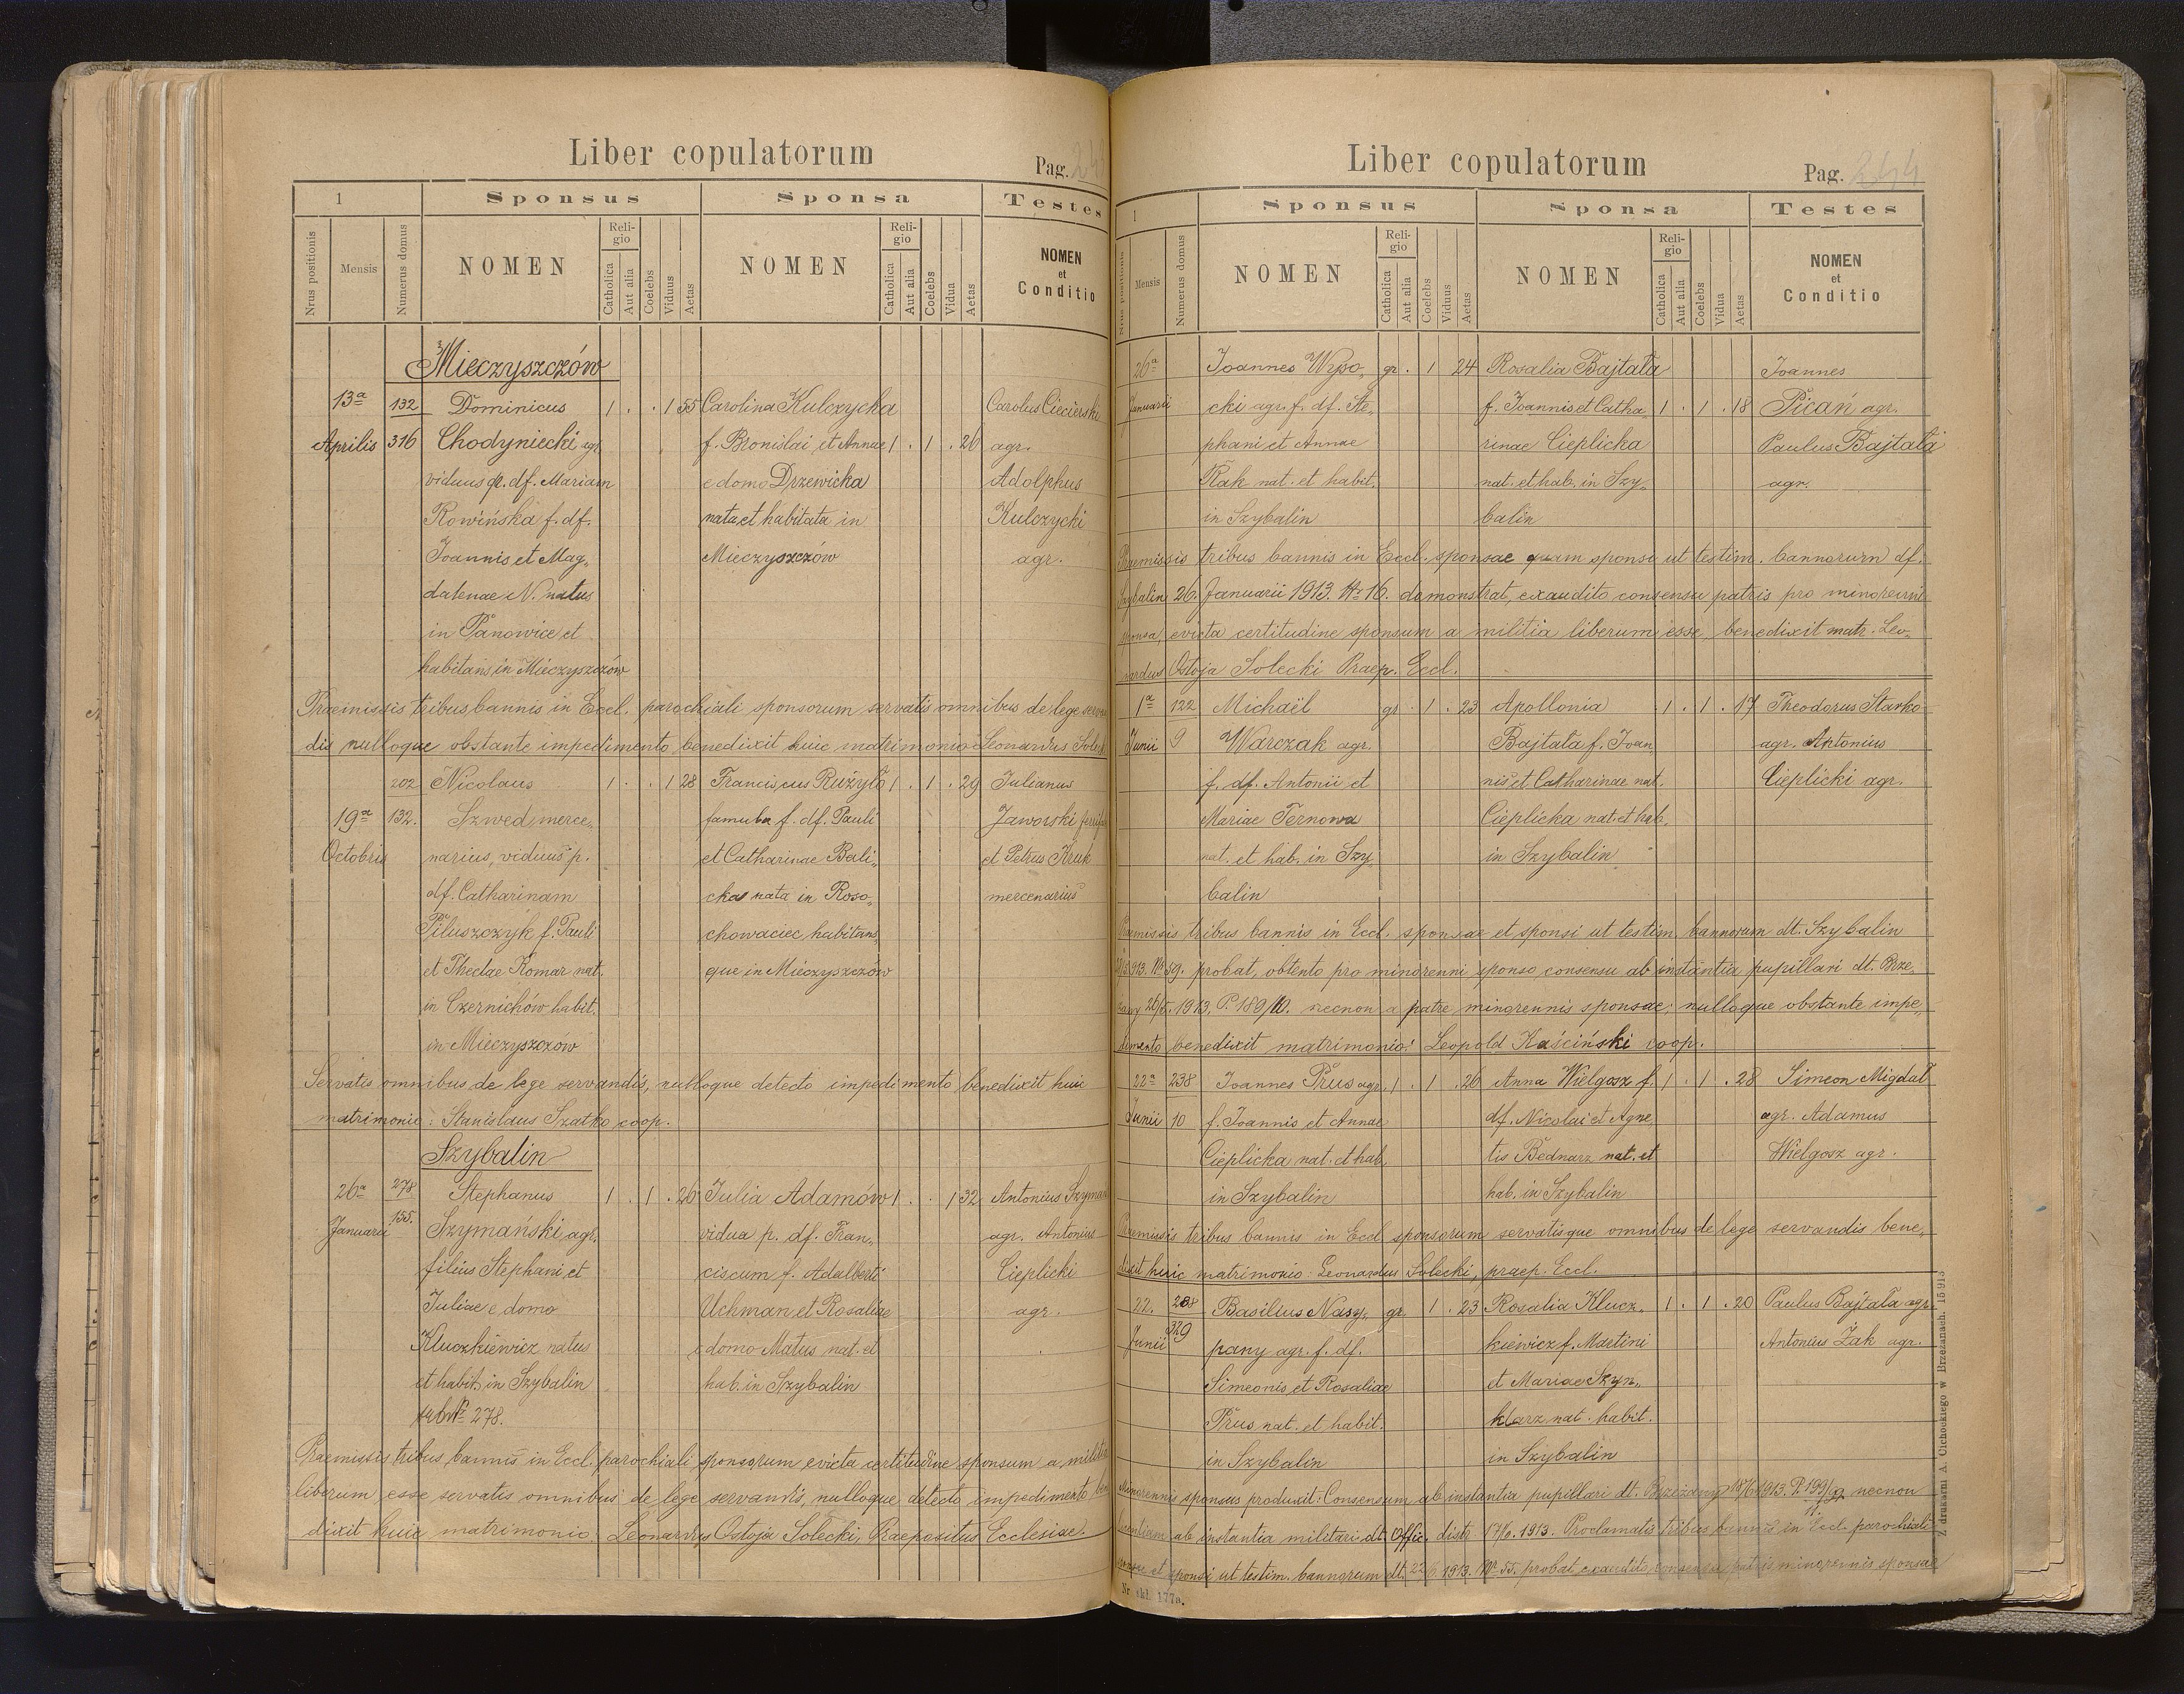 Liber copulatorum
Pag. 24
1
Sponsus
Sponsa
Testes
Nrus positionis
Mensis
Numerus domus
NOMEN
Religio
Catholica
Aut alia
Coelebs
Viduus
Aetas
NOMEN
Religio
Catholica
Aut alia
Coelebs
Vidua
Aetas
NOMEN
et
Conditio
Mieczyszczów
13a 132 Dominicus 1 . . 1 55 Carolina Kulczycka Carolus Ciecierski
Aprilis 316 Chodyniecki agr. f. Bronislai et Annae 1 . 1 . 26 agr.
viduus p. df. Mariam e domo Drzewicka Adolphus
Rowińska f. df. nata et habitata in Kulczycki
Joannis et Mag„ Mieczyszczów agr.
dalenae N. natus
in Panowice et
habitans in Mieczyszczów
Praemissis tribus bannis in Eccl. parochiali sponsorum servatis omnibus de lege servan
dis nulloque obstante impedimento benedixit huic matrimonio Leonardus Soleck
202 Nicolaus 1 . . 1 28 Franciscus Rużyło 1 . 1 . 29 Julianus
19a 132. Szwed, merce„ famula f. df. Pauli Jaworski
Octobris narius, viduus p. et Catharinae Bali„ et Petrus Kruk
df. Catharinam cka nata in Roso„ mercenarius
Piluszczyk f. Pauli chowaciec habitans„
et Theclae Romar nat. que in Mieczyszczów
in Czernichów habit.
in Mieczyszczów
Servatis omnibus de lege servandis, nulloque detecto impedimento benedixit huic
matrimonio: Stanislaus Szatko coop.
Szybalin
26a 278 Stephanus 1 . 1 . 26 Julia Adamów 1 . . 1 32 Antonius Szymań
Januarii 155. Szymański agr. vidua p. df. Fran„ agr. Antonius
filius Stephani et ciscum f. Adalberti Cieplicki
Juliae e domo Uchman et Rosaliae agr.
Kluczkiewicz natus e domo Matus nat. et
et habit. in Szybalin hab. in Szybalin
sub Nr 278.
Praemissis tribus bannis in Eccl. parochiali sponsorum evicta certitudine sponsum a militia
liberum esse servatis omnibus de lege servandis, nulloque detecto impedimento bene
dixit huic matrimonio. Leonardus Ostoja Solecki, Praepositus Ecclesiae.
Liber copulatorum
Pag. 244
1
Sponsus
Sponsa
Testes
Nrus positionis
Mensis
Numerus domus
NOMEN
Religio
Catholica
Aut alia
Coelebs
Viduus
Aetas
NOMEN
Religio
Catholica
Aut alia
Coelebs
Vidua
Aetas
NOMEN
et
Conditio
26a Joannes Wyso„ gr. . 1 24 Rosalia Bajtała Joannes
Januarii cki agr. f. df. Ste„ f. Joannis et Catha„ 1 . 1 . 18 Picań agr.
phani et Annae rinae Cieplicka Paulus Bajtała
Rak nat. et habit. nat. et hab. in Szy„ agr.
in Szybalin balin
Praemissis tribus bannis in Eccl. sponsae quam sponsi ut testim. bannorum df.
Szybalin 26. Januarii 1913. Nr 16. demonstrat, exaudito consensu patris pro minorenni
sponsa, evicta certitudine sponsum a militia liberum esse, benedixit matr. Leo„
nardus Ostoja Solecki Praep. Eccl.
1a 122 Michaël gr . 1 . 23 Apollonia 1 . 1 . 17 Theodorus Starko
Junii 9 Warczak agr. Bajtała f. Joan agr. Antonius
f. df. Antonii et nis et Catharinae nat. Cieplicki agr.
Mariae Ternowa Cieplicka nat. et hab.
nat. et hab. in Szy in Szybalin
balin
Praemissis tribus bannis in Eccl. sponsae et sponsi ut testim. bannorum dt. Szybalin
1913. Nr 59. probat, obtento pro minorenni sponso consensu ab instantia pupillari dt. Brze„
żany 26/5. 1913. P. 189/10. necnon a patre minorennis sponsae; nulloque obstante impe„
dimento benedixit matrimonio: Leopold Kaściński coop.
22a 238 Joannes Prus agr. 1 . 1 . 26 Anna Wielgosz f. 1 . 1 . 28 Simeon Migdał
Junii 10 f. Joannis et Annae df. Nicolai et Agne agr. Adamus
Cieplicka nat. et hab. tis Bednarz nat. et Wielgosz agr.
in Szybalin hab. in Szybalin
Praemissis tribus bannis in Eccl sponsorum servatisque omnibus de lege servandis bene„
dixit huic matrimonio: Leonardus Solecki, praep. Eccl.
22. 208 Basilius Nasy„ gr. 1 . 23 Rosalia Klucz„ 1 . 1 . 20 Paulus Bajtała agr.
Junii 329 pany agr. f. df. kiewicz f. Martini Antonius Żak agr.
Simeonis et Rosaliae et Mariae Szyn„
Prus nat. et habit. klarz nat. habit.
in Szybalin in Szybalin
Minorennis sponsus produxit: Consensum ab instantia pupillari dt. Brzeżany 18/6 1913. P. 199/ necnon
licentiam ab instantia militari dt. Offic. distr. 17/6. 1913. Proclamatis tribus bannis in Eccl. parochiali
sponsae et sponsi ut testim. bannorum dt. 22/6. 1913. Nr 55. probat, exaudito consensu patris minorennis sponsae
Nr. skl. 177a.
Z drukarni A. Cichockiego w Brzeżanach.